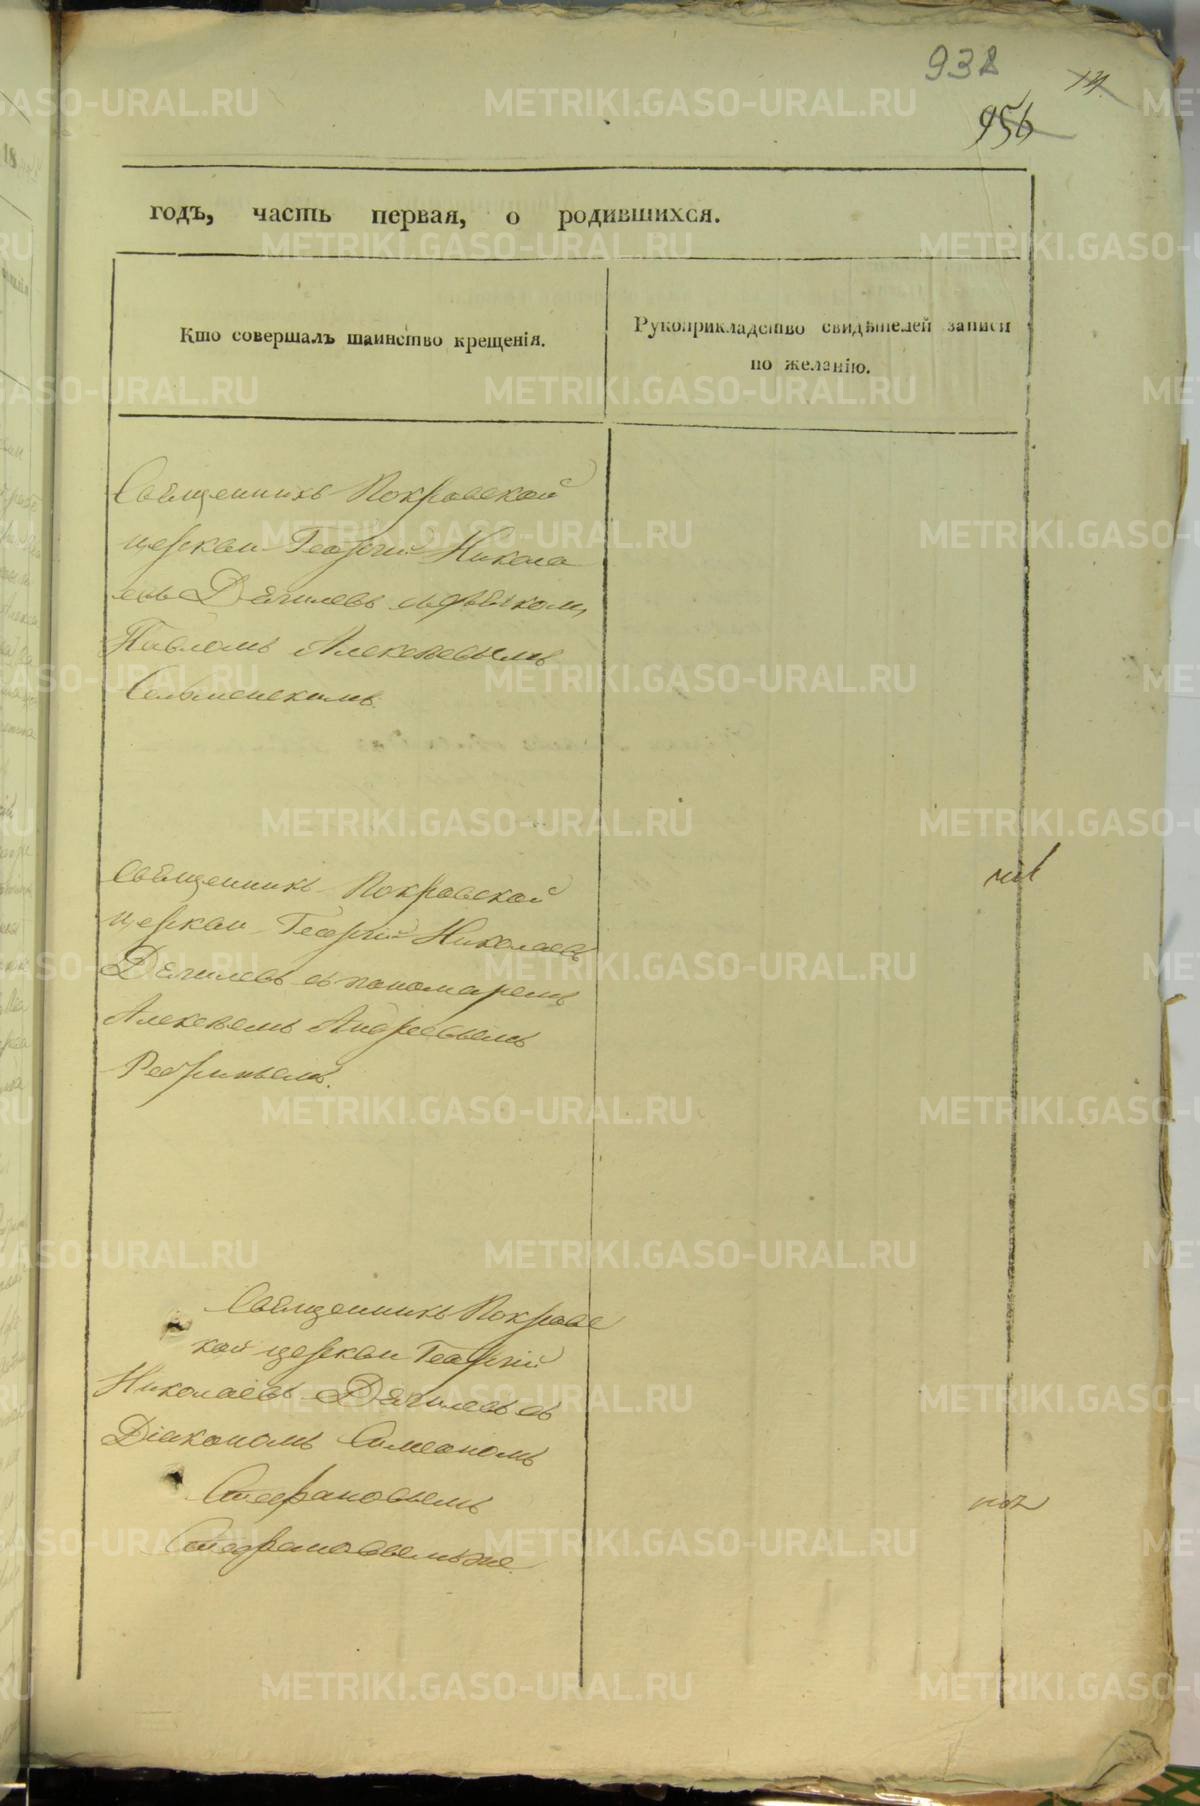 938
956
14
годъ, часть первая, о родившихся.
Кто совершалъ таинство крещенія.
Рукоприкладство свидѣтелей записи
по желанію.
Священникъ Покровской
церкви Георгій Никола
евъ Дягилевъ съ дьякомъ
Павломъ Алексѣевымъ
Священникъ Покровской
церкви Георгій Николаевъ
Дягилевъ съ пономаремъ
Алексѣемъ Андреевымъ
Священникъ Покровс
кой церкви Георгій
Николаевъ Дягилевъ съ
Діакономъ Симеономъ
Стефановымъ
Стефановымъ же.
METRIKI.GASO-URAL.RU